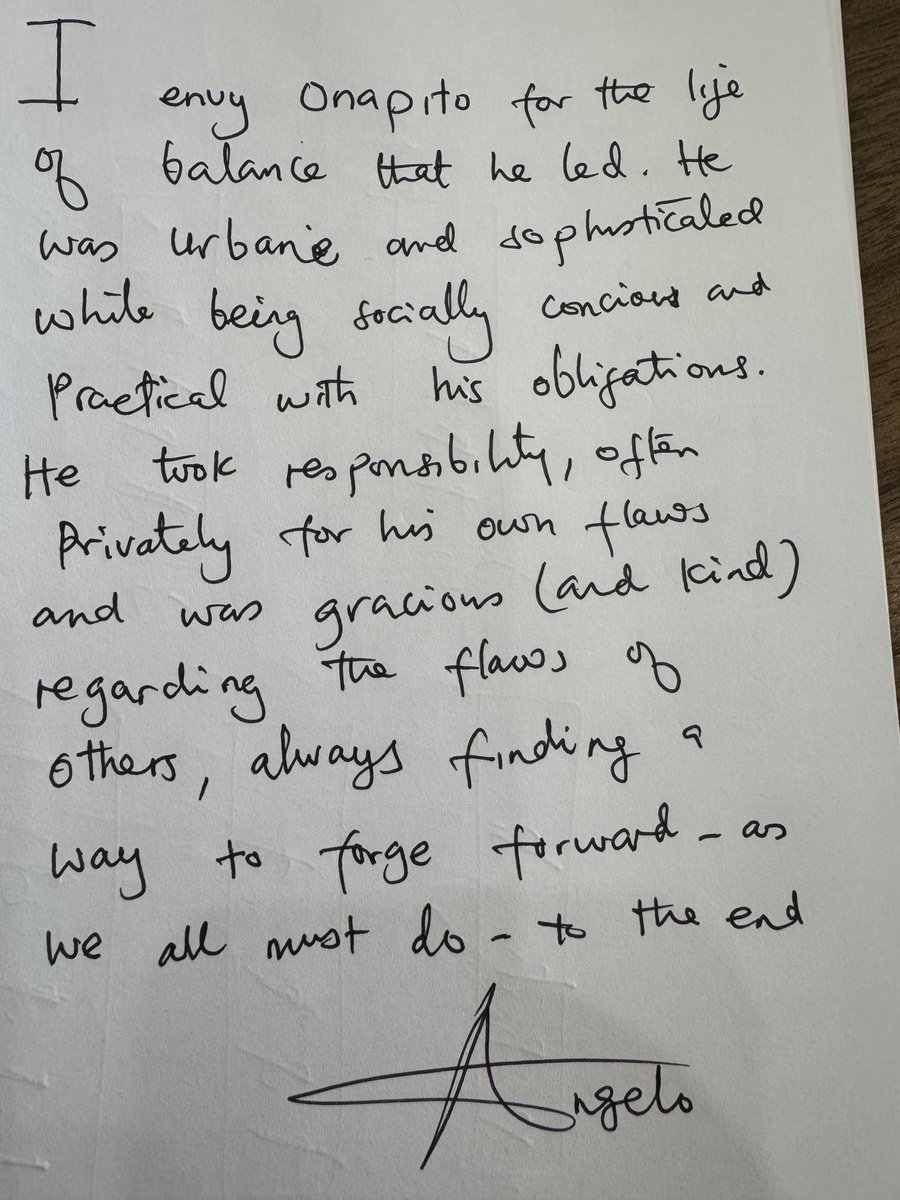 I envy Onapito for the life
of balance that he led. He
was urbane and sophisticated
while being socially concious and
Practical with his obligations.
He took responsibility, often
Privately for his own flaws
and was gracious (and kind)
regarding the flaws of
others, always finding a
way to forge forward - as
we all must do - to the end
Angelo